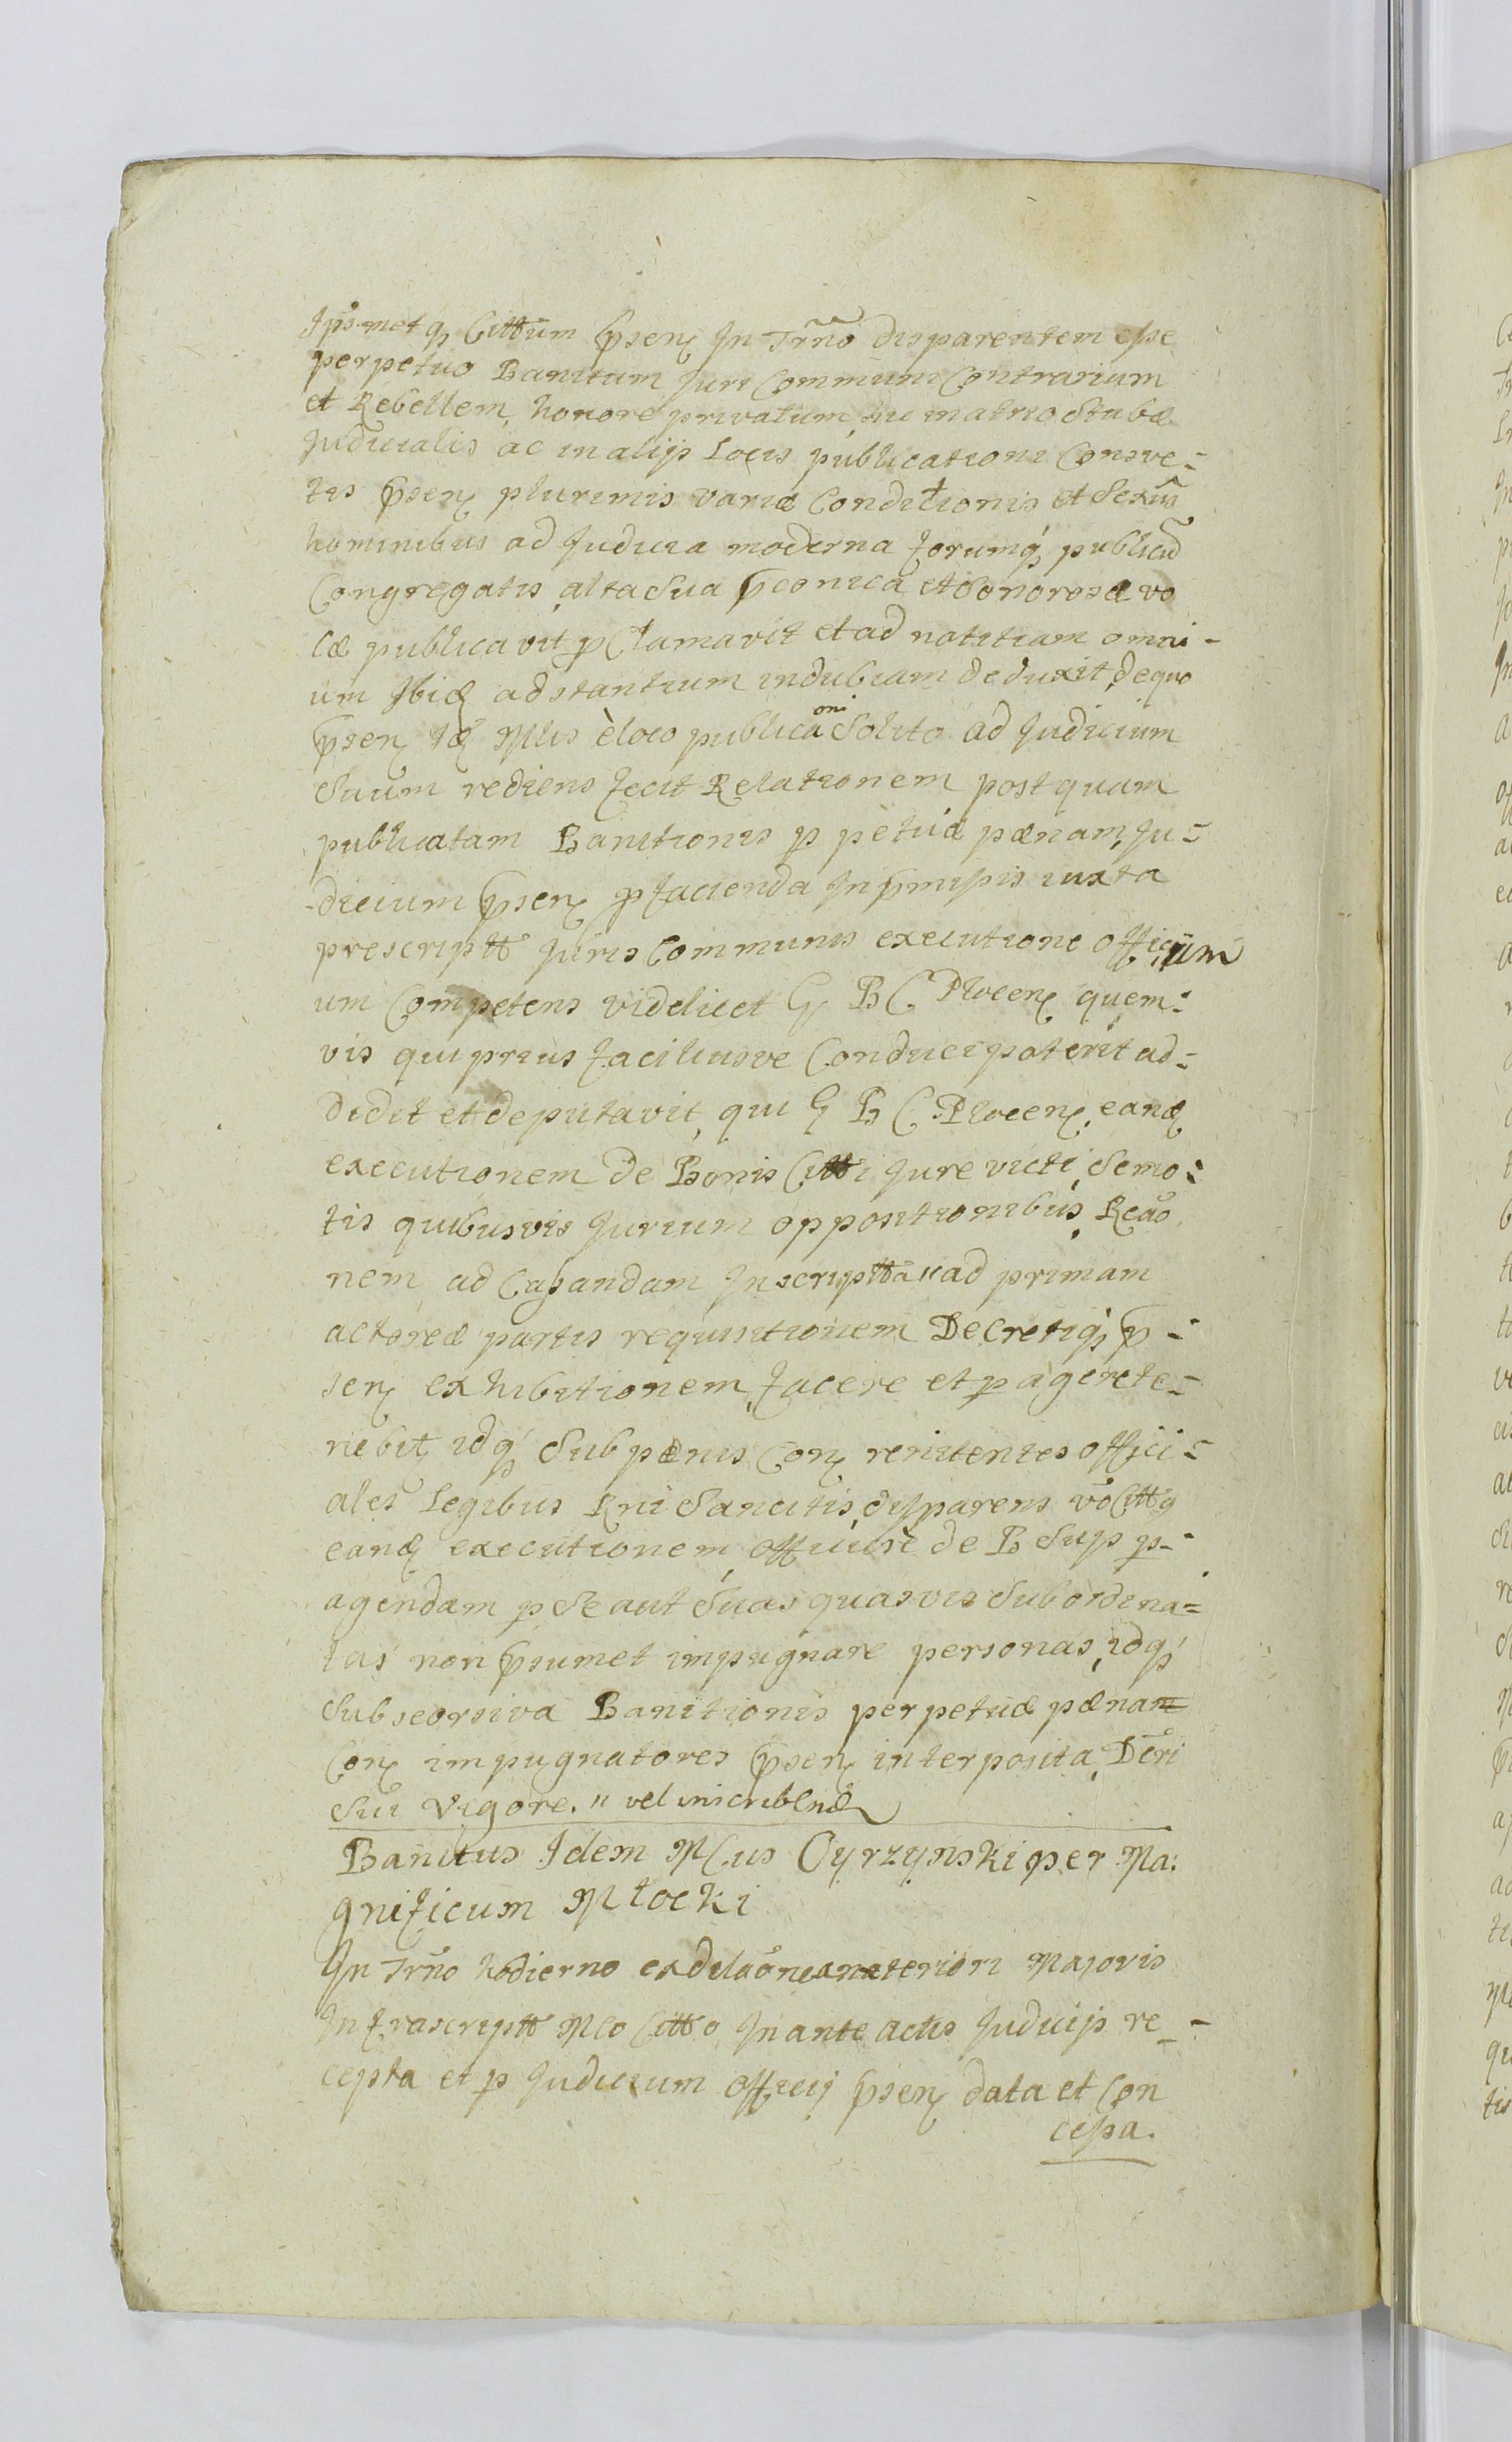 Ipsmetq Cittum psen In Trno disparentem esse
perpetuo Banitum Juri Communi Contrarium
et Rebellem, honore privatum, in atrio Stubæ
Judicialis ac in alijs Locis publicationi Consve-
tis psen plurimis variæ Conditionis et Sexus
hominibus ad Judicia moderna forumq publicu
Congregatis, alta Sua pconica et Sonorosæ vo
cæ publicavit pClamavit et ad notitiam omni-
um Ibid adstantium indubiam deduxit, de quo
psen Id Mlis è loco publicaoni Solito ad Judicium
Suum rediens fecit Relationem post quam
publicatam Banitionis ppetuæ pænam, Ju-
dicium psen p facienda In pmissis iuxta
prescriptt Juris Communis executione officium
um Competens videlicet G B C Plocen quem-
vis qui prius faciliusve Conduci poterit ad-
didit et deputavit, qui G B C Plocen, eand
executionem de Bonis Citti Jure victi, Semo-
tis quibusvis Jurium oppositionibus, Reao
nem ad Cassandam Inscriptta " ad primam
actoreæ partis requisitionem Decretiq p-
sen exhibitionem, facere et pagere te-
nebit, idq Sub pænis Con renitentes offici-
ales Legibus Rni Sancitis, disparens vo Cittg
eand executionem, officiose de B Sup p-
agendam p Se aut Suas quasvis Subordina-
tas non psumet impugnare personas, idq
Sub seorsiva Banitionis perpetuæ pæna
Con impugnatores psen interposita, Dcri
Sui Vigore. " vel inscribend
Banitus Idem MCus Cyrzynski per Ma:
gnificum Młocki
In Trno hodierno ex dilaone anteriori Majoris
Infrascriptt Mco Citto In ante actis Judicijs re-
cepta et p Judicium officij psen data et Con
cessa.